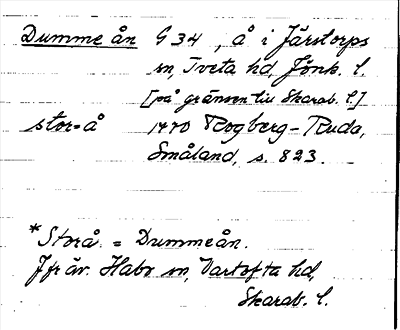 Dumme ån G 34, å i Järstorps
sn, Tveta hd, Jönk. l.
[på gränsen till Skarab. l.]
stor=å 1770 Rogberg-Ruda,
Småland, s. 823.
*Storå = Dummeån.
Jfr äv. Habo sn, Vartofta hd,
Skarab. l.